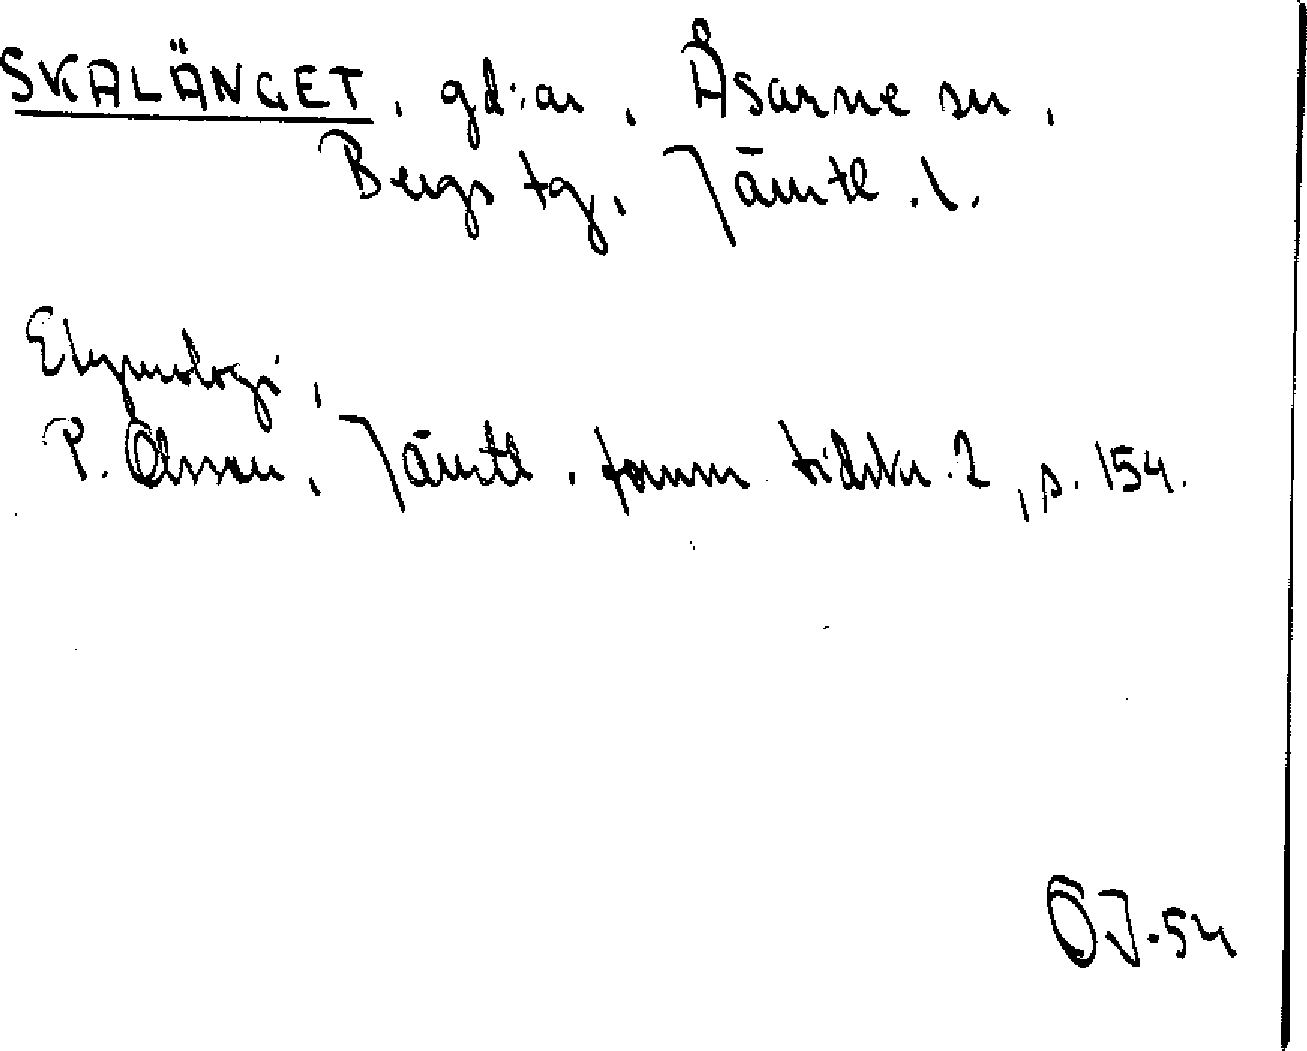 SKALÄNGET, gd:ar, Åsarne sn,
Bergs tg, Jämtl. l.
Etymologi,
P. Olsson, Jämtl. fornm tidskr. 2, s. 154.
ÖJ.54